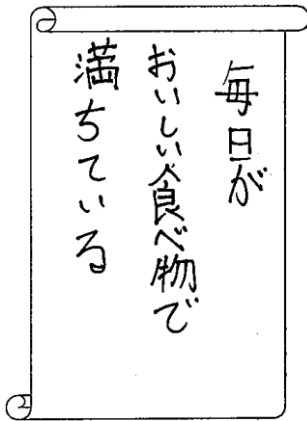 毎日が
おいしい食べ物で
満ちている